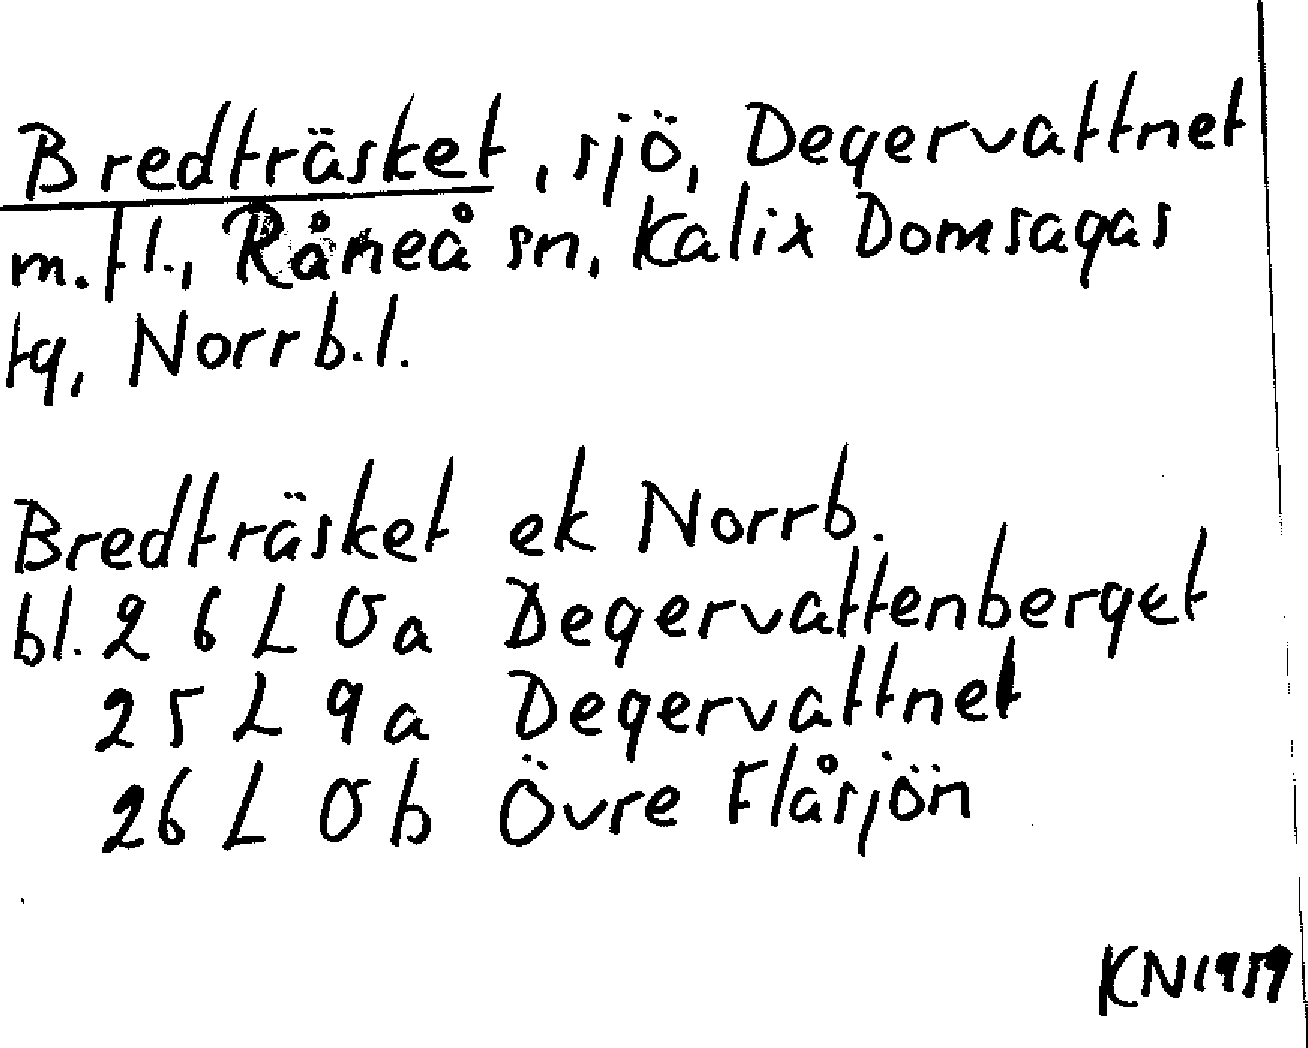 Bredträsket, sjö, Degervattnet
m.fl., Råneå sn, Kalix Domsagas
tg, Norrb.l.
Bredträsket ek Norrb.
bl. 26 L 0a Degervattenberget
25 L 9a Degervattnet
26 L 0b Övre Flåsjön
KN1959